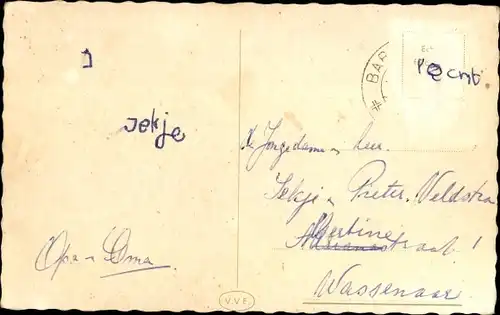 Jekje
Opa en Oma.
BAR
recht
De Jongedame en heer
Jekje en Pieter Veldstra
Albertine straat 1
Wassenaar.
V.V.E.